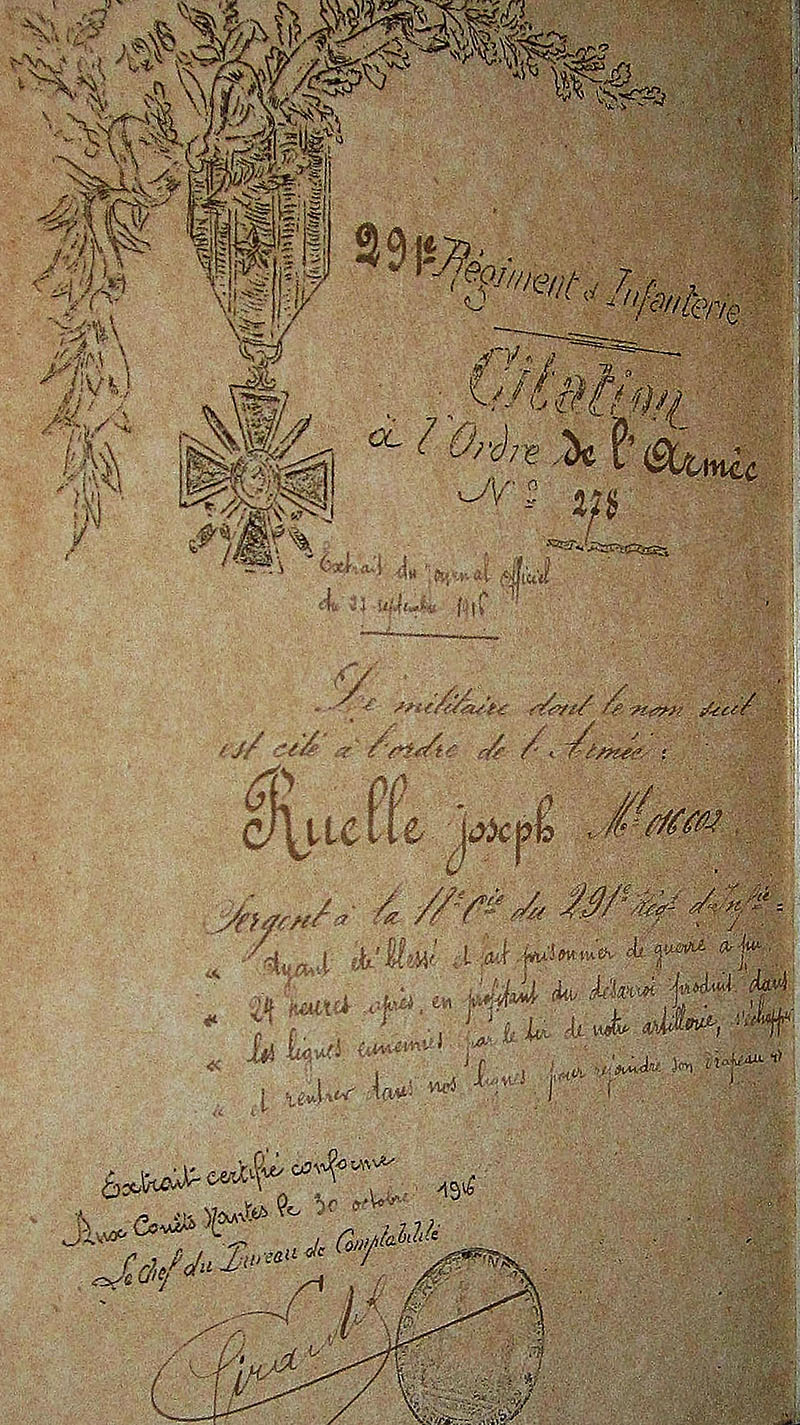 1916
291e Régiment d'Infanterie
Citation
à l'Ordre de l'Armée
No 278
Extrait du Journal Officiel
du 27 septembre 1916
Le militaire dont le nom suit
est cité à l'ordre de l'Armée :
Ruelle Joseph Mle 016602
Sergent à la 17e Cie du 291e Régt d'Infie =
" Ayant été blessé et fait prisonnier de guerre a pu
" 24 heures après, en profitant du désarroi produit dans
" les lignes ennemies par le tir de notre artillerie, s'échapper
" et rentrer dans nos lignes pour rejoindre son drapeau "
Extrait certifié conforme
Aux Couëts Nantes le 30 octobre 1916
Le chef du Bureau de Comptabilité